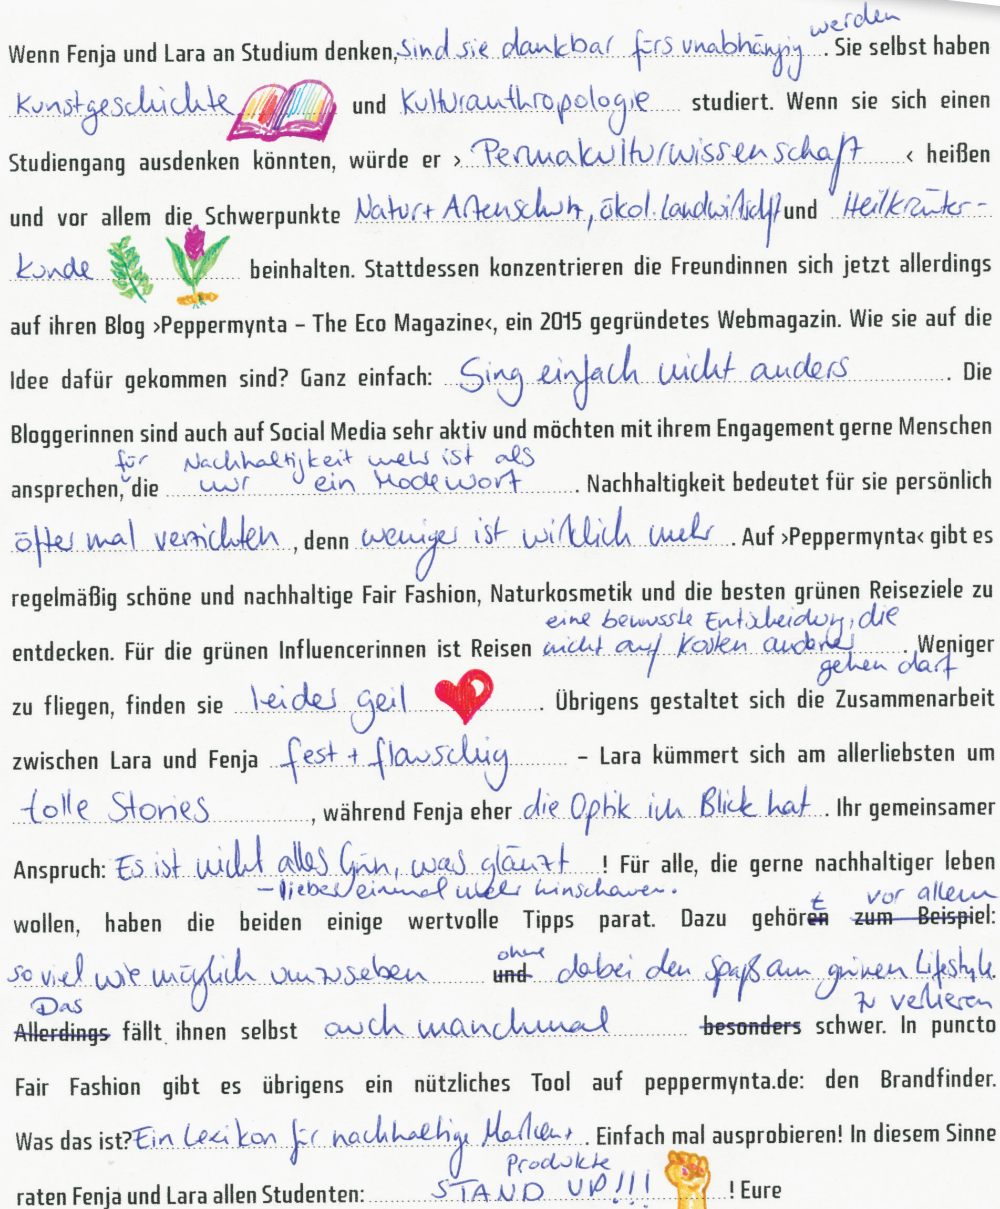 werden
Wenn Fenja und Lara an Studium denken, sind sie dankbar fürs unabhängig . Sie selbst haben
Kunstgeschichte und Kulturanthropologie studiert. Wenn sie sich einen
Studiengang ausdenken könnten, würde er › Permakulturwissenschaft ‹ heißen
und vor allem die Schwerpunkte Natur+ Artenschutz, ökol. Landwirtschaft und Heilkräuter-
kunde beinhalten. Stattdessen konzentrieren die Freundinnen sich jetzt allerdings
auf ihren Blog ›Peppermynta – The Eco Magazine‹, ein 2015 gegründetes Webmagazin. Wie sie auf die
Idee dafür gekommen sind? Ganz einfach: Ging einfach nicht anders . Die
Bloggerinnen sind auch auf Social Media sehr aktiv und möchten mit ihrem Engagement gerne Menschen
für Nachhaltigkeit mehr ist als
ansprechen, die nur ein Modewort . Nachhaltigkeit bedeutet für sie persönlich
öfter mal verzichten , denn weniger ist wirklich mehr . Auf ›Peppermynta‹ gibt es
regelmäßig schöne und nachhaltige Fair Fashion, Naturkosmetik und die besten grünen Reiseziele zu
eine bewusste Entscheidung, die
entdecken. Für die grünen Influencerinnen ist Reisen nicht auf Kosten anderer . Weniger
gehen darf
zu fliegen, finden sie leider geil . Übrigens gestaltet sich die Zusammenarbeit
zwischen Lara und Fenja fest + flauschig – Lara kümmert sich am allerliebsten um
tolle Stories , während Fenja eher die Optik im Blick hat . Ihr gemeinsamer
Anspruch: Es ist nicht alles Grün, was glänzt ! Für alle, die gerne nachhaltiger leben
– lieber einmal mehr hinschauen.
wollen, haben die beiden einige wertvolle Tipps parat. Dazu gehören t zum Beispiel: vor allem
so viel wie möglich umzusehen und ohne dabei den Spaß am grünen Lifestyle.
Das zu verlieren
Allerdings fällt ihnen selbst auch manchmal besonders schwer. In puncto
Fair Fashion gibt es übrigens ein nützliches Tool auf peppermynta.de: den Brandfinder.
Was das ist? Ein Lexikon für nachhaltige Marken+ . Einfach mal ausprobieren! In diesem Sinne
Produkte
raten Fenja und Lara allen Studenten: STAND UP!!! ! Eure